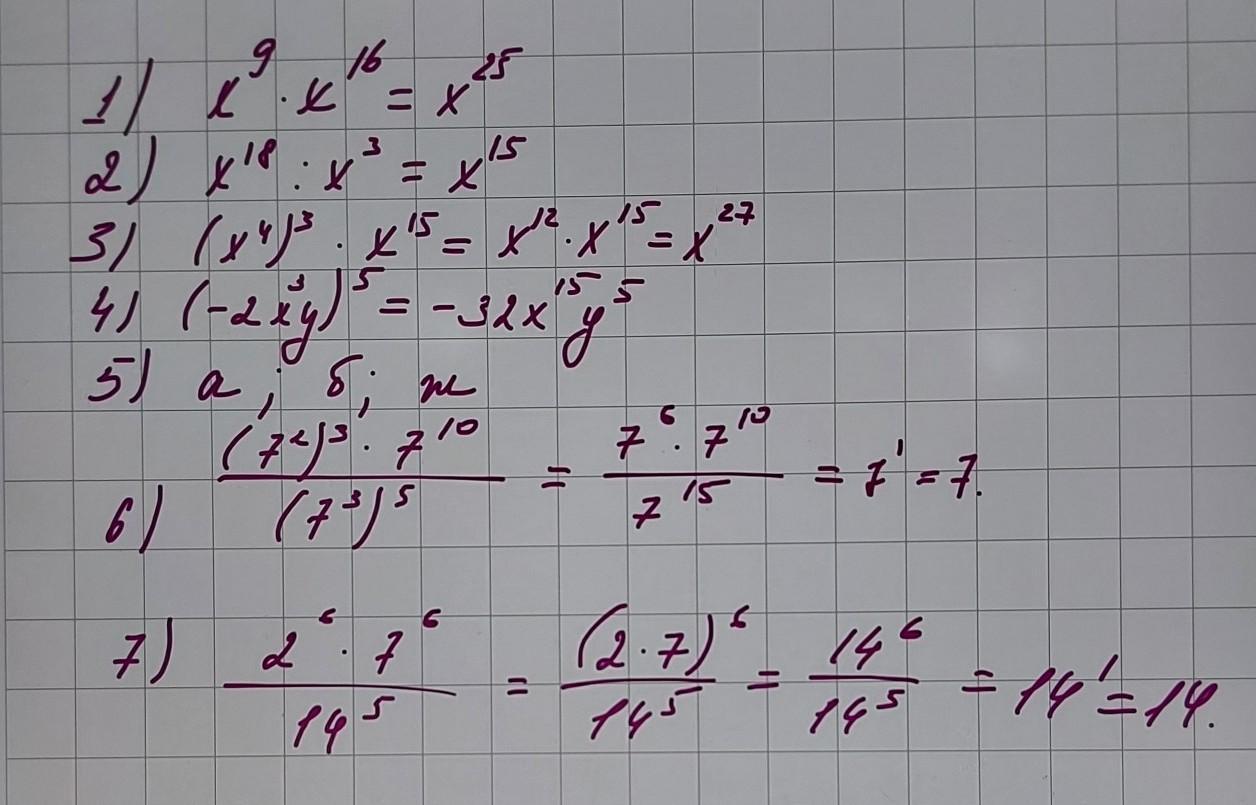 1) x⁹ · x¹⁶ = x²⁵
2) x¹⁸ : x³ = x¹⁵
3) (x⁴)³ · x¹⁵ = x¹² · x¹⁵ = x²⁷
4) (-2x³y)⁵ = -32x¹⁵y⁵
5) а; б; ж
6) ((7²)³ · 7¹⁰)/((7³)⁵) = (7⁶ · 7¹⁰)/(7¹⁵) = 7¹ = 7.
7) (2⁶ · 7⁶)/(14⁵) = ((2 · 7)⁶)/(14⁵) = (14⁶)/(14⁵) = 14¹ = 14.